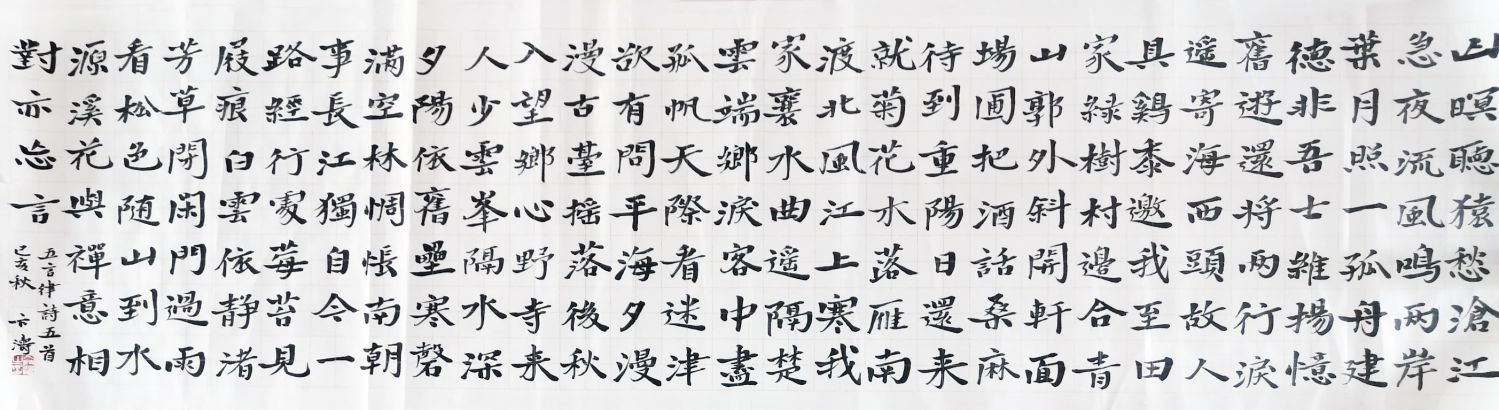 山暝聽猿愁滄江
急夜流風鳴兩岸
葉月照一孤舟建
德非吾士維揚憶
舊遊還将兩行淚
遥寄海西頭故人
具鷄黍邀我至田
家緑樹村邊合青
山郭外斜開軒面
場圃把酒話桑麻
待到重陽日還来
就菊花木落雁南
渡北風江上寒我
家襄水曲遥隔楚
雲端鄉淚客中盡
孤帆天際看迷津
欲有問平海夕漫
漫古臺摇落後秋
入望鄉心野寺来
人少雲峯隔水深
夕陽依舊壘寒磬
滿空林惆悵南朝
事長江獨自今一
路經行處莓苔見
屐痕白雲依静渚
芳草閉閑門過雨
看松色随山到水
源溪花與禪意相
對亦忘言
五言律詩五首
己亥秋 卞濤